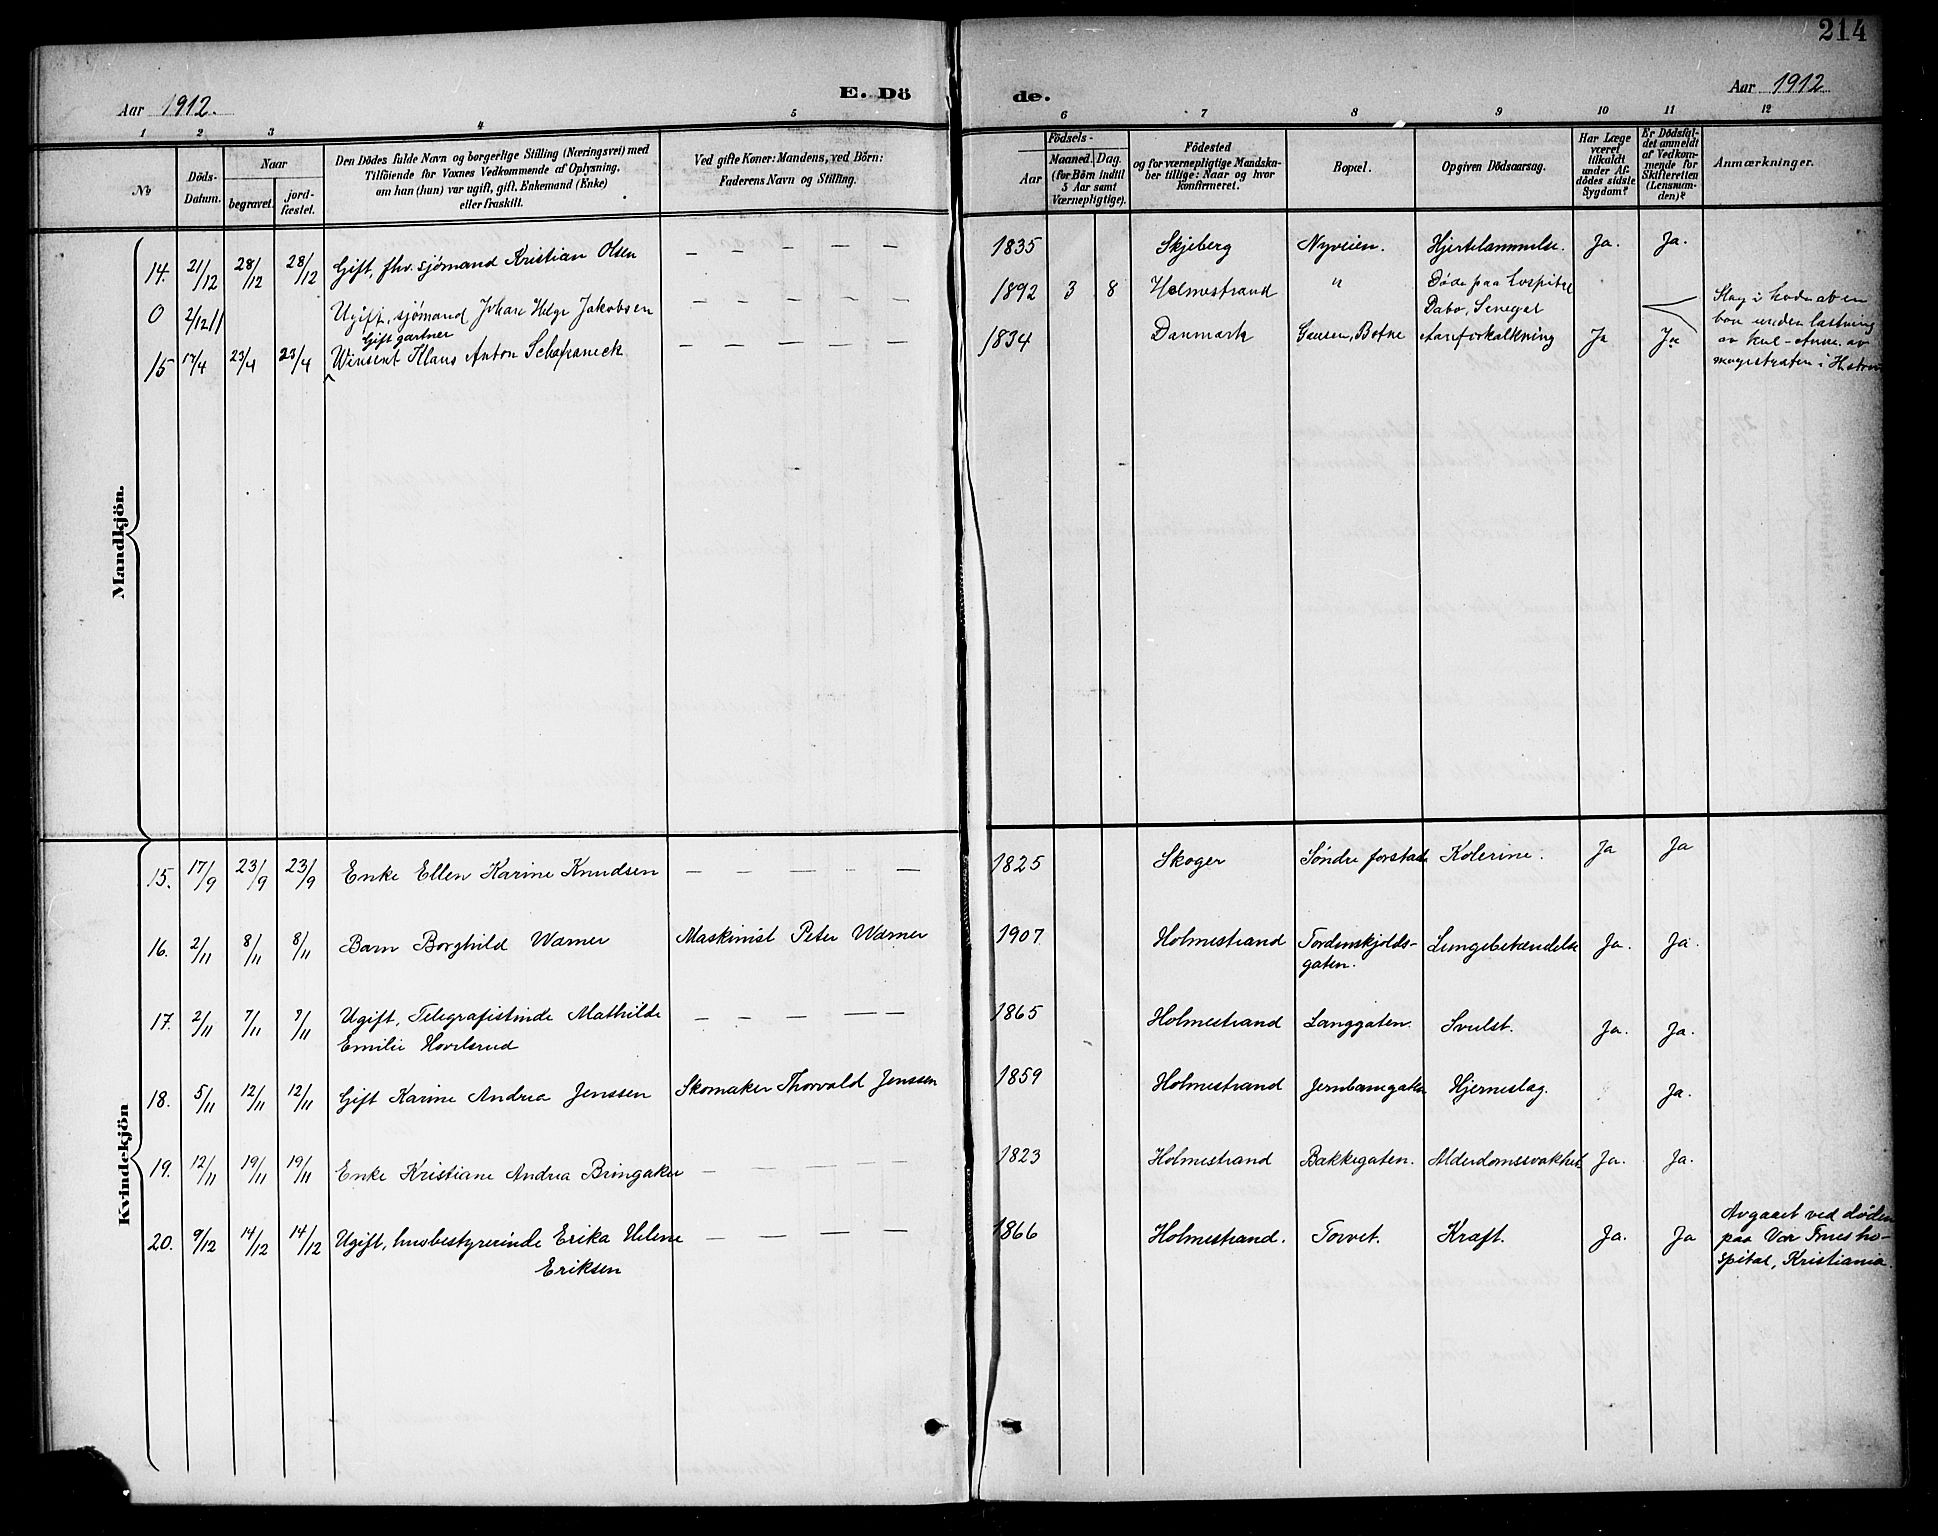 214
Aar 1912.
E. Dö
de.
Aar 1912
1 2 3 4 5 6 7 8 9 10 11 12
No
Döds-Datum.
Naar
begravet.
jord-fæstet.
Den Dödes fulde Navn og borgerlige Stilling (Næringsvei) med
Tilföiende for Voxnes Vedkommende af Oplysning,
om han (hun) var ugift, gift, Enkemand (Enke)
eller fraskilt.
Ved gifte Koner: Mandens, ved Börn:
Faderens Navn og Stilling.
Födsels-
Aar
Maaned. Dag.
(for Börn indtil
5 Aar samt
Værnepligtige).
Födested
og for værnepligtige Mandska-
ber tillige: Naar og hvor
konfirmeret.
Bopæl.
Opgiven Dödsaarsag.
Har Læge
været
tilkaldt
under Af-
dödes sidste
Sygdom?
Er Dödsfal-
det anmeldt
af Vedkom-
mende for
Skifteretten
(Lensman-
den)?
Anmærkninger.
Mandkjön.
14. 21/12 28/12 28/12 Gift, fhv. sjömand Kristian Olsen — — — — — 1835 Skjeberg Nyveien. Hjertelammelse. Ja. Ja.
0 2/12 11 Ugift, sjömand Johan Helge Jakobsen — — — — — 1892 3 8 Holmestrand " Döde paa hospitel
Dabo, Senegel
Slag i hodet ab en
bom under lastning
av kul - Anm. av
magistraten i H.strand
Gift gartner
15 17/4 23/4 23/4 Winsent Klaus Anton Schafraneck — — — — — 1834 Danmark Gausen, Botne Aareforkalkning Ja Ja
Kvindekjön
15. 17/9 23/9 23/9 Enke Ellen Karine Knudsen — — — — — 1825 Skoger Söndre forstad Kolerine. Ja Ja
16. 2/11 8/11 8/11 Barn Borghild Warner Maskinist Peter Warner 1907 Holmestrand Tordenskjolds-
gaten. Lungebetændelse Ja. Ja.
17. 2/11 7/11 7/11 Ugift, Telegrafistinde Mathilde
Emilie Hovlsrud — — — — — 1865 Holmestrand Langgaten. Svulst. Ja. Ja.
18. 5/11 12/11 12/11 Gift Karine Andrea Jenssen Skomaker Thorvald Jenssen 1859 Holmestrand Jernbanegaten Hjerneslag. Ja.
19. 12/11 19/11 19/11 Enke Kristiane Andrea Bringaker — — — — — 1823 Holmestrand Bakkegaten. Alderdomssvakhet Ja. Ja.
20. 9/12 14/12 14/12 Ugift, husbestyrerinde Erika Helene
Eriksen — — — — — 1866 Holmestrand. Torvet. Kræft. Ja. Ja
Avgaaet ved döden
paa Vor Frues ho-
spital, Kristiania.